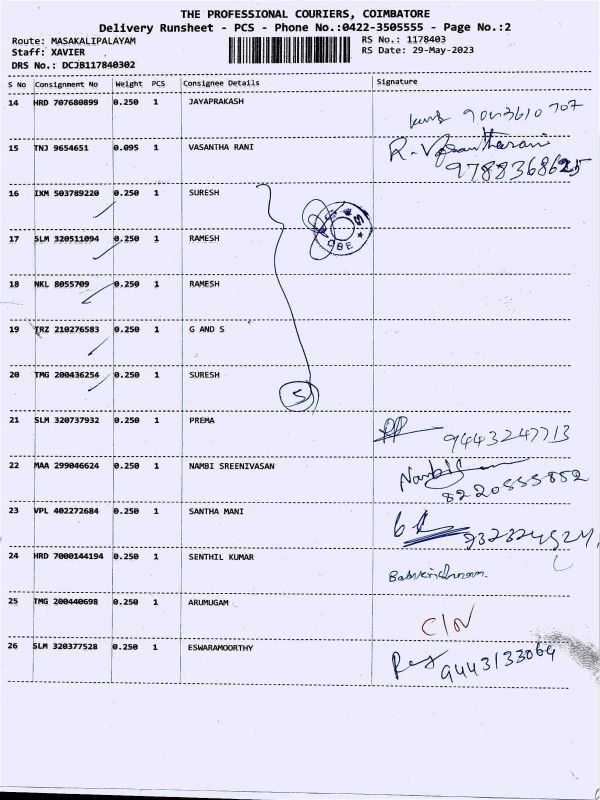 THE PROFESSIONAL COURIERS, COIMBATORE
Delivery Runsheet - PCS - Phone No.:0422-3505555 - Page No.:2
Route: MASAKALIPALAYAM RS No.: 1178403
Staff: XAVIER RS Date: 29-May-2023
DRS No.: DCJB117840302
S No Consignment No Weight PCS Consignee Details Signature
14 HRD 707680899 0.250 1 JAYAPRAKASH
15 TNJ 9654651 0.095 1 VASANTHA RANI R. Vasantharani
9788368625
16 IXM 503789220 0.250 1 SURESH
17 SLM 320511094 0.250 1 RAMESH
18 NKL 8055709 0.250 1 RAMESH
19 TRZ 210276583 0.250 1 G AND S
20 TMG 200436254 0.250 1 SURESH
5
21 SLM 320737932 0.250 1 PREMA 9443247713
22 MAA 299046624 0.250 1 NAMBI SREENIVASAN
8220555852
23 VPL 402272684 0.250 1 SANTHA MANI
24 HRD 7000144194 0.250 1 SENTHIL KUMAR
25 TMG 200440698 0.250 1 ARUMUGAM
26 SLM 320377528 0.250 1 ESWARAMOORTHY 9443133064